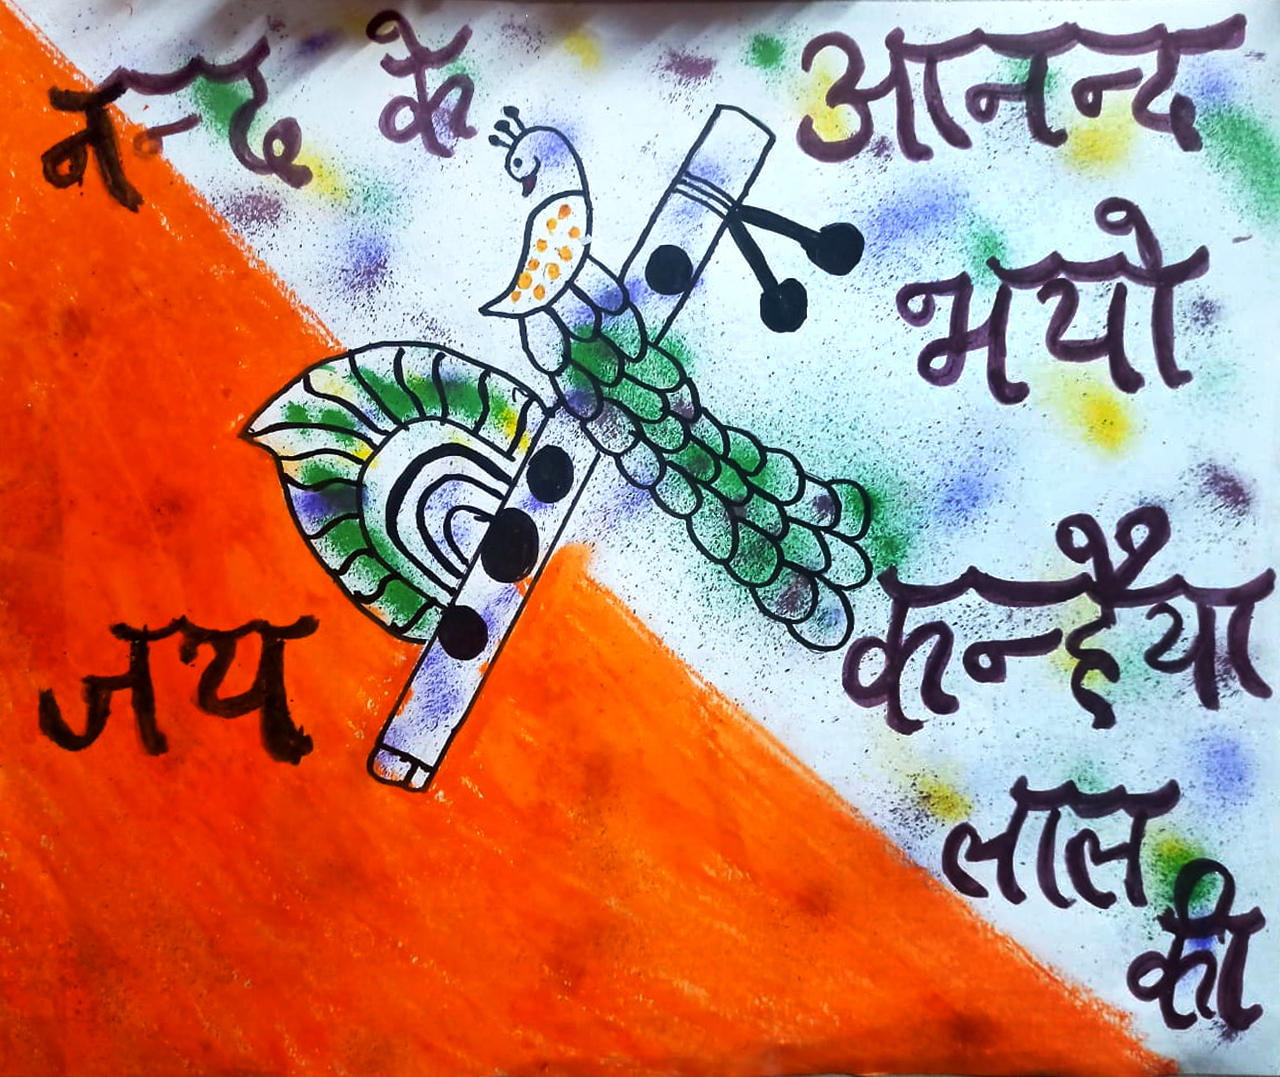 नन्द के आनन्द
भयो
जय कन्हैया
लाल
की